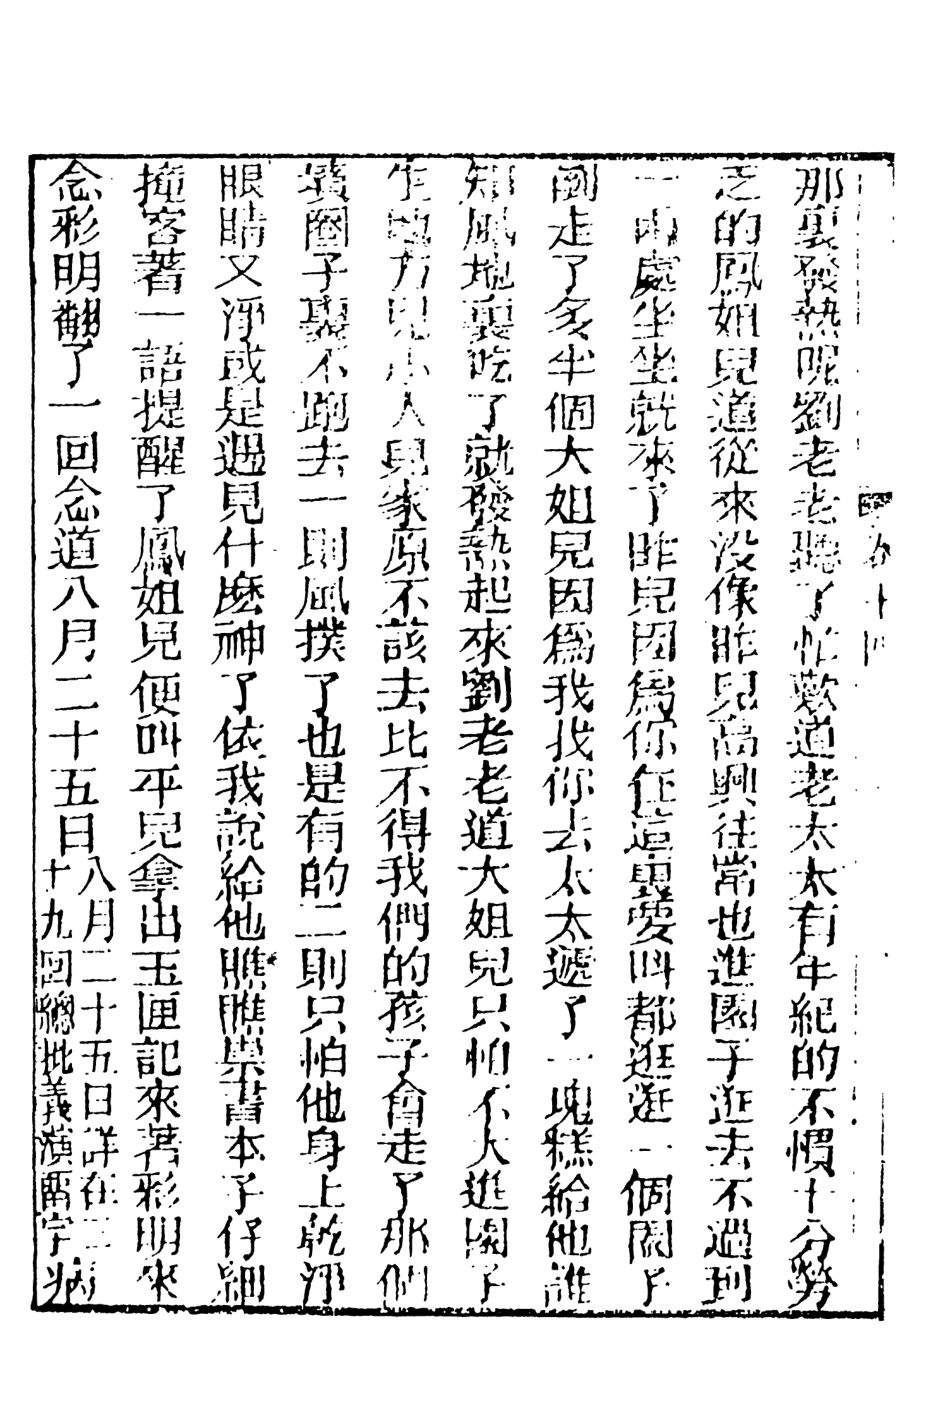 那裏發熱呢劉老老聽了忙歎道老太太有年紀的不慣十分勞
乏的鳳姐兒道從來没像昨兒高興往常也進園子逛去不過到
一兩處坐坐就來了昨兒因爲你在這裏要叫都逛逛一個園子
倒走了多半個大姐兒因爲我找你去太太遞了一塊糕給他誰
知風地裏吃了就發熱起來劉老老道大姐兒只怕不大進園子
生地方兒小人兒家原不該去比不得我們的孩子會走了那個
墳圈子裏不跑去一則風撲了也是有的二則只怕他身上乾淨
眼睛又淨或是遇見什麽神了依我說給他瞧瞧祟書本子仔細
撞客著一語提醒了鳳姐兒便叫平兒拿出玉匣記來著彩明來
念彩明翻了一回念道八月二十五日
八月二十五日詳在二
十九回總批義演兩字
第十四